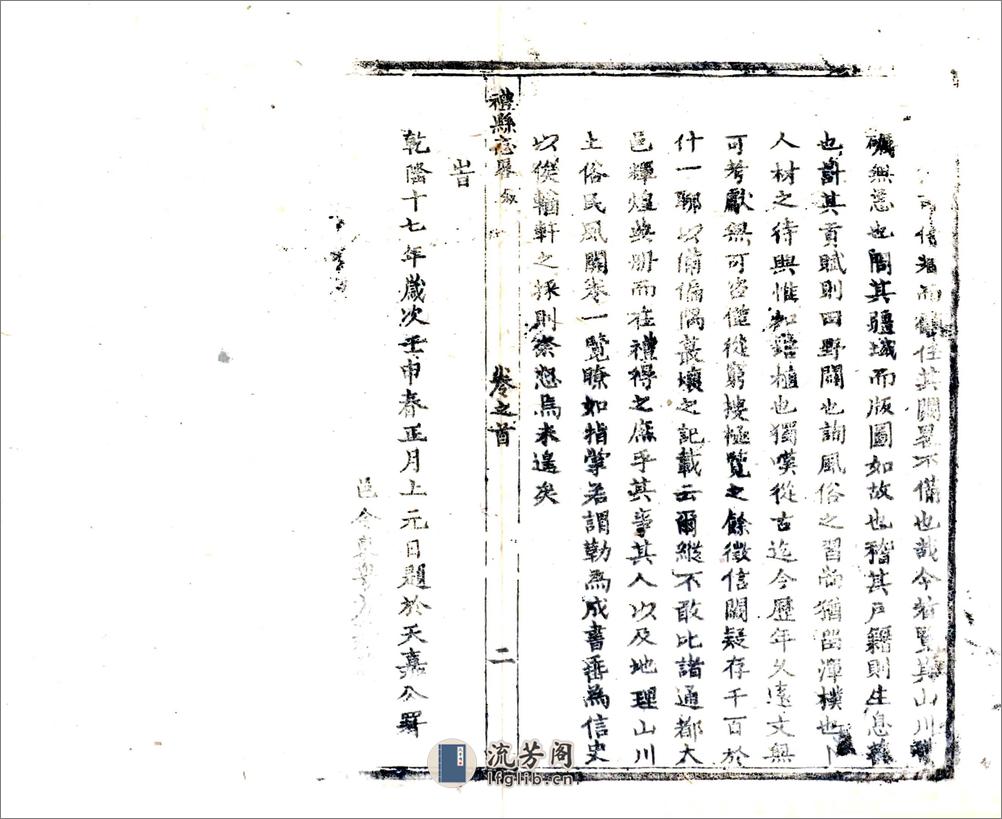 信者而任其闕畧不備也哉今者覽其山川則
礪無恙也閱其疆域而版圖如故也稽其戶籍則生息
也計其貢賦則田野闢也詢風俗之習尚猶留渾樸也卜
人材之待興惟知培植也獨嘆從古迄今歷年久遠文無
可考獻無可咨僅從窮搜極覽之餘徵信闕疑存千百於
什一聊以備偏隅蕞壤之記載云爾縱不敢比諸通都大
邑輝煌典册而在禮得之庶乎其事其人以及地理山川
土俗民風開卷一覽瞭如指掌若謂勒為成書垂為信史
以俟輶軒之採則余愍焉未遑矣
禮縣志畧 敘 卷之首 二
旹
乾隆十七年歲次壬申春正月上元日題於天嘉公署
邑令
流芳阁
lfglib.cn